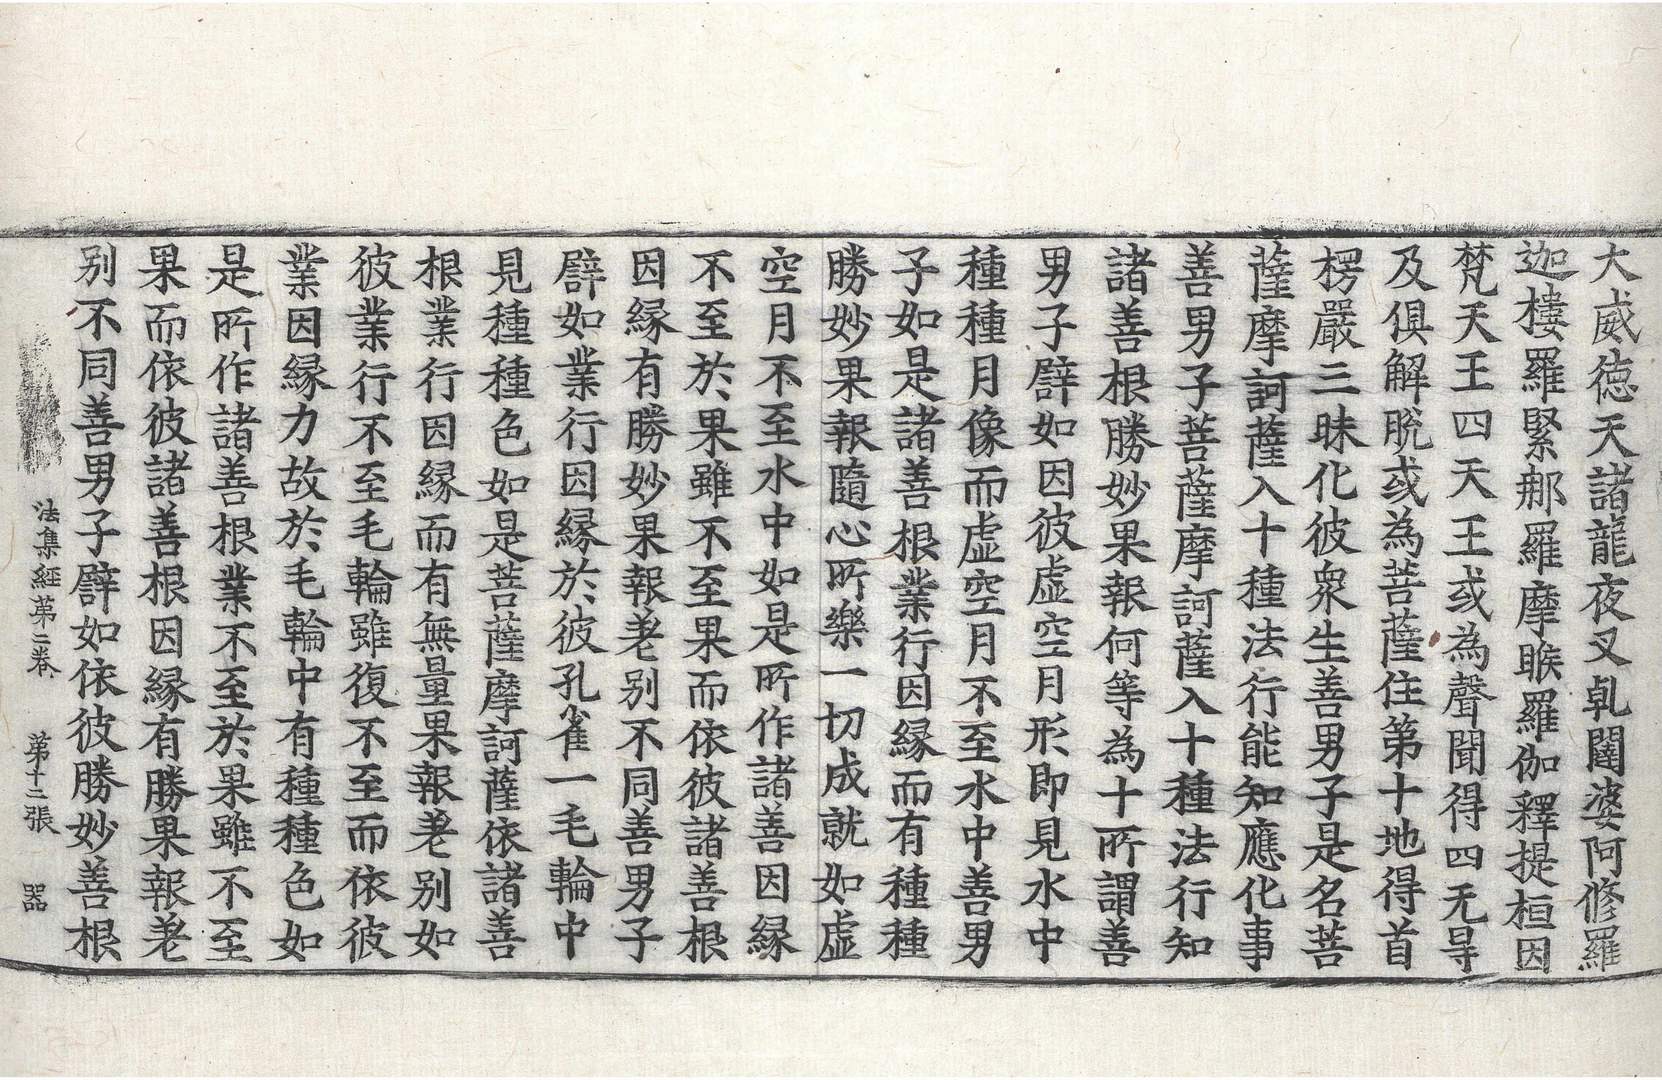 大威徳天諸龍夜叉乹闥婆阿修羅
迦樓羅緊那羅摩睺羅伽釋提桓因
梵天王四天王或為聲聞得四无㝵
及俱解脫或為菩薩住第十地得首
楞嚴三昧化彼衆生善男子是名菩
薩摩訶薩入十種法行能知應化事
善男子菩薩摩訶薩入十種法行知
諸善根勝妙果報何等為十所謂善
男子譬如因彼虛空月形即見水中
種種月像而虛空月不至水中善男
子如是諸善根業行因緣而有種種
勝妙果報隨心所樂一切成就如虛
空月不至水中如是所作諸善因緣
不至於果雖不至果而依彼諸善根
因緣有勝妙果報差别不同善男子
譬如業行因緣於彼孔雀一毛輪中
見種種色如是菩薩摩訶薩依諸善
根業行因緣而有無量果報差别如
彼業行不至毛輪雖復不至而依彼
業因緣力故於毛輪中有種種色如
是所作諸善根業不至於果雖不至
果而依彼諸善根因緣有勝果報差
别不同善男子譬如依彼勝妙善根
法集經第二卷 第十二張 器